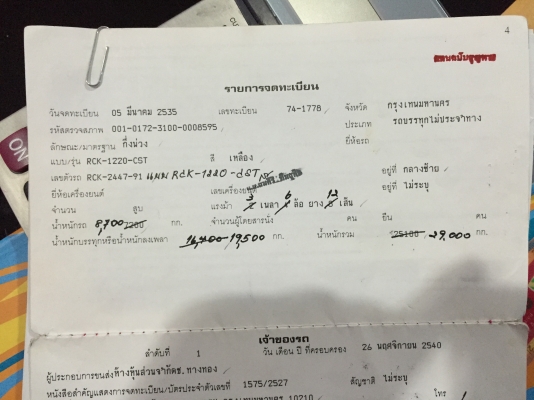 4
แทนฉบับสูญหาย
รายการจดทะเบียน
วันจดทะเบียน 05 มีนาคม 2535 เลขทะเบียน 74-1778 จังหวัด กรุงเทพมหานคร
รหัสตรวจสภาพ 001-0172-3100-0008595 ประเภท รถบรรทุกไม่ประจำทาง
ลักษณะ/มาตรฐาน กึ่งพ่วง ยี่ห้อรถ
แบบ/รุ่น RCK-1220-CST สี เหลือง
เลขตัวรถ RCK-2447-91 แบบ RCK-1220-CST อยู่ที่ กลางซ้าย
ยี่ห้อเครื่องยนต์ เลขเครื่องยนต์ อยู่ที่ ไม่ระบุ
จำนวน สูบ แรงม้า 3 เพลา 6 ล้อ ยาง 12 เส้น
น้ำหนักรถ 8,700 กก. จำนวนผู้โดยสารนั่ง คน ยืน คน
น้ำหนักบรรทุกหรือน้ำหนักลงเพลา 16,400 19,500 กก. น้ำหนักรวม 25100 29,000 กก.
เจ้าของรถ
ลำดับที่ 1 วัน เดือน ปี ที่ครอบครอง 26 พฤศจิกายน 2540
ผู้ประกอบการขนส่ง ห้างหุ้นส่วนจำกัด ช.ทางทอง
หนังสือสำคัญแสดงการจดทะเบียน/บัตรประจำตัวเลขที่ 1575/2527 สัญชาติ ไม่ระบุ
10210 โทร